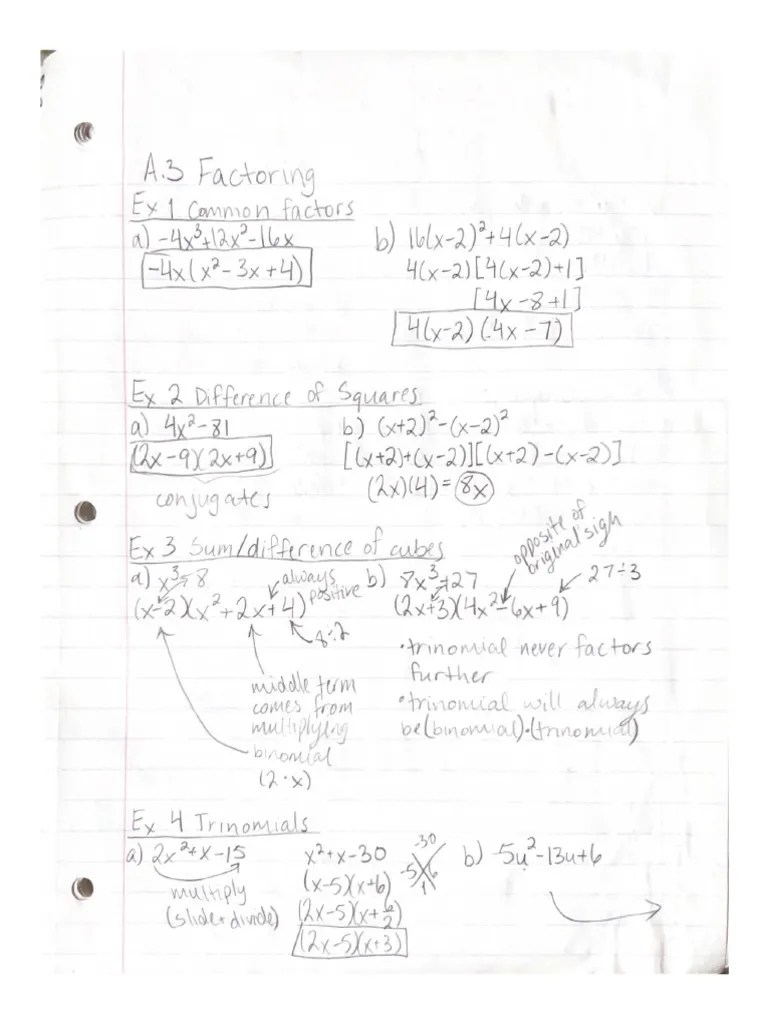 A.3 Factoring
Ex 1 Common factors
a) -4x³+12x²-16x
-4x(x²-3x+4)
b) 16(x-2)²+4(x-2)
4(x-2)[4(x-2)+1]
[4x-8+1]
4(x-2)(4x-7)
Ex 2 Difference of Squares
a) 4x²-81
(2x-9)(2x+9)
conjugates
b) (x+2)²-(x-2)²
[(x+2)+(x-2)][(x+2)-(x-2)]
(2x)(4)=8x
Ex 3 Sum/difference of cubes
a) x³-8
(x-2)(x²+2x+4)
always
positive
8÷2
middle term
comes from
multiplying
binomial
(2·x)
b) 8x³+27
(2x+3)(4x²-6x+9)
opposite of
original sign
27÷3
•trinomial never factors
further
•trinomial will always
be (binomial)·(trinomial)
Ex 4 Trinomials
a) 2x²+x-15
multiply
(slide+divide)
x²+x-30
(x-5)(x+6)
(2x-5)(x+6/2)
(2x-5)(x+3)
-30
-5 6
1
b) -5u²-13u+6